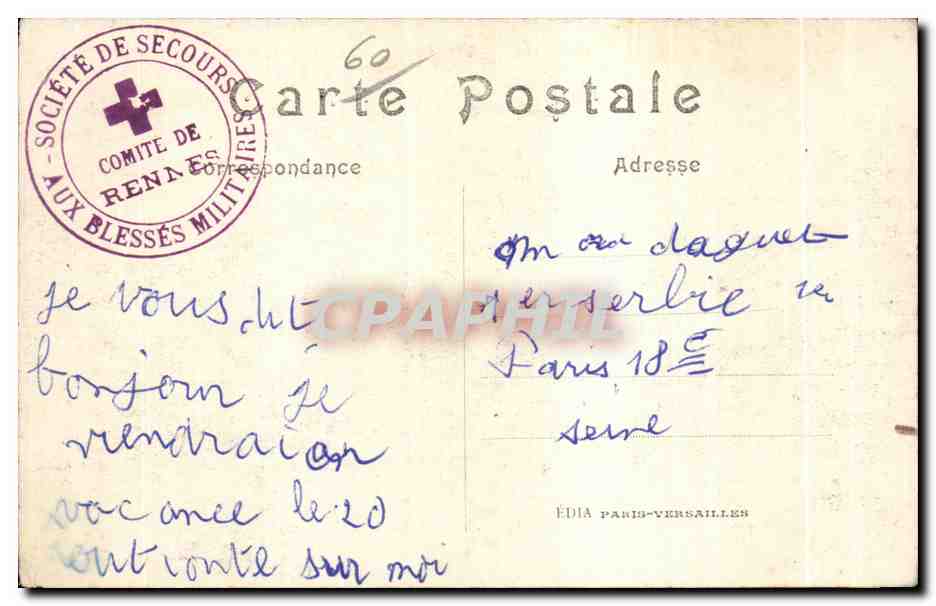 SOCIÉTÉ DE SECOURS
AUX BLESSÉS MILITAIRES
COMITE DE
RENNES
60
Carte Postale
Correspondance
Adresse
CPAPHIL
je vous dit
bonjour je
viendrai en
vacance le 20
conte sur moi
daguet
serbie
Paris 18e
seine
EDIA PARIS-VERSAILLES